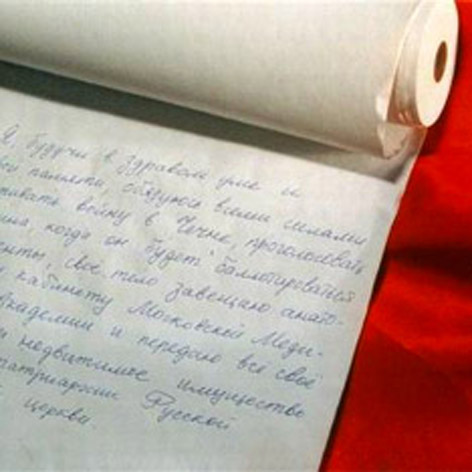 Я, будучи в здравом уме и
памяти, обязуюсь всеми силами
войну в Чечне, проголосовать
когда он будет баллотироваться
свое тело завещаю анато-
кабинету Московской Меди-
и передаю все своё
недвижимое имущество
Русской
церкви.